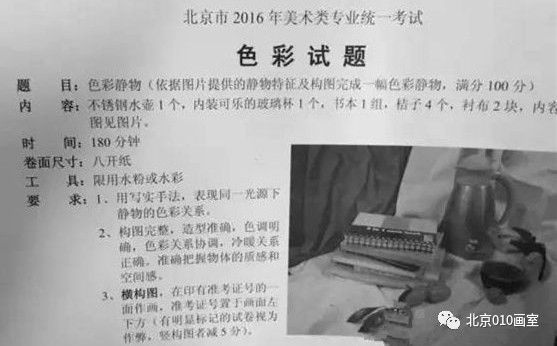 北京市2016年美术类专业统一考试
色彩试题
题　　目：色彩静物（依据图片提供的静物特征及构图完成一幅色彩静物，满分100分）
内　　容：不锈钢水壶1个，内装可乐的玻璃杯1个，书本1组，桔子4个，衬布2块，内容
图见图片。
时　　间：180分钟
卷面尺寸：八开纸
工　　具：限用水粉或水彩
要　　求：1、用写实手法，表现同一光源下
静物的色彩关系。
2、构图完整，造型准确，色调明
确，色彩关系协调，冷暖关系
正确。准确把握物体的质感和
空间感。
3、横构图，在印有准考证号的一
面作画，准考证号置于画面左
下方（有明显标记的试卷视为
作弊，竖构图者减5分）。
北京010画室